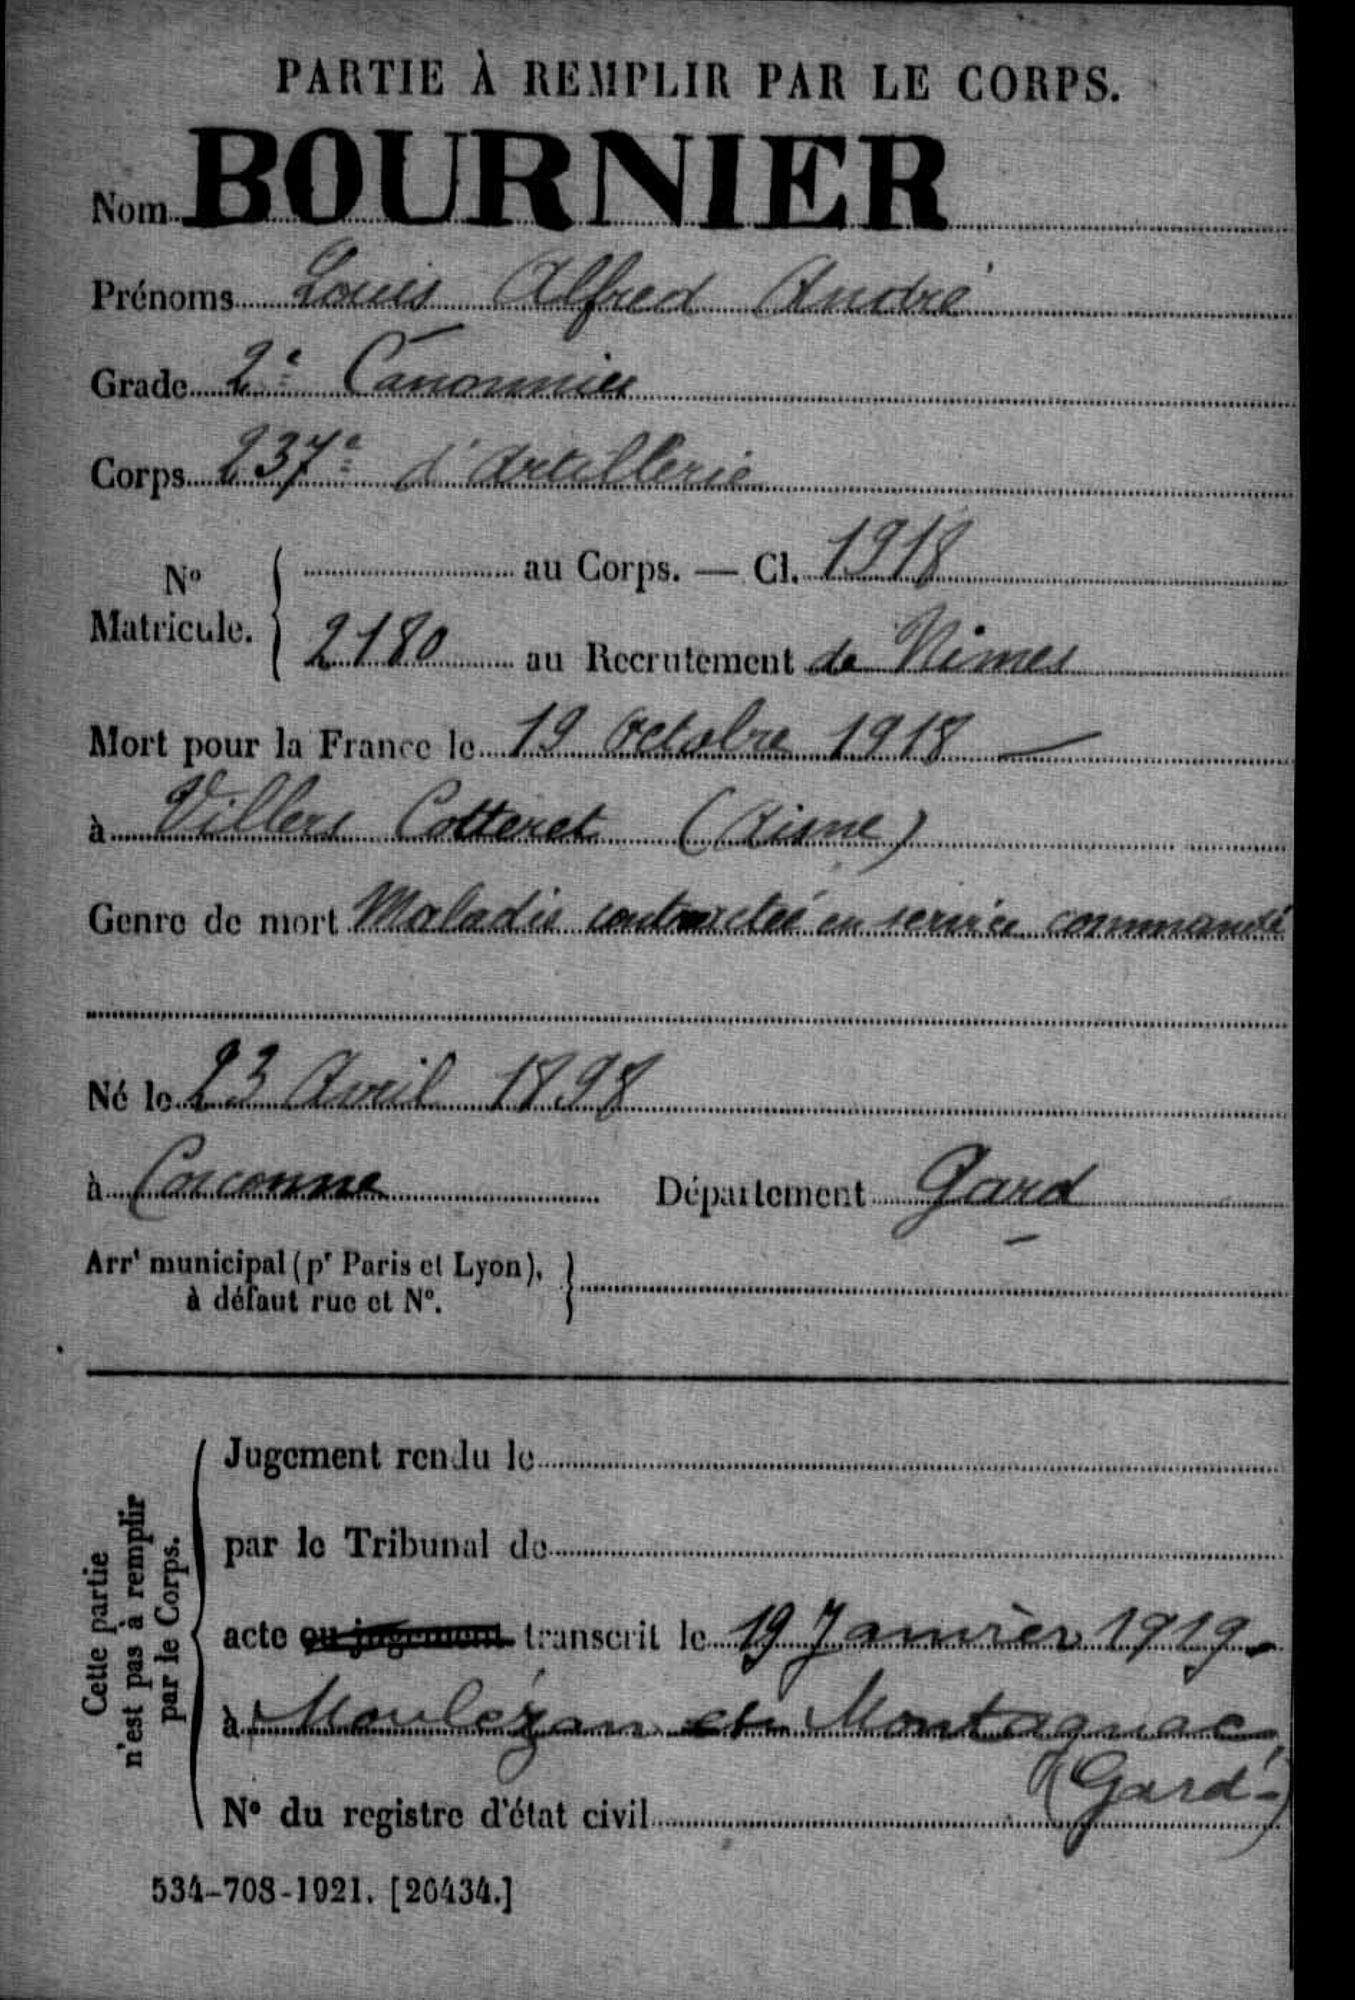 PARTIE À REMPLIR PAR LE CORPS.
Nom BOURNIER
Prénoms Louis Alfred André
Grade 2e Canonnier
Corps 237e d'Artillerie
No Matricule. { au Corps. — Cl. 1918
2180 au Recrutement de Nimes
Mort pour la France le 19 Octobre 1918 —
à Villers Cotteret (Aisne)
Genre de mort Maladie contractée en service commandé
Né le 23 Avril 1898
à Corconne Département Gard
Arrt municipal (pr Paris et Lyon), }
à défaut rue et No.
Cette partie
n'est pas à remplir
par le Corps.
Jugement rendu le
par le Tribunal de
acte ou jugement transcrit le 19 Janvier 1919.
à Moulézan et Montagnac
(Gard-)
No du registre d'état civil
534-708-1921. [26434.]